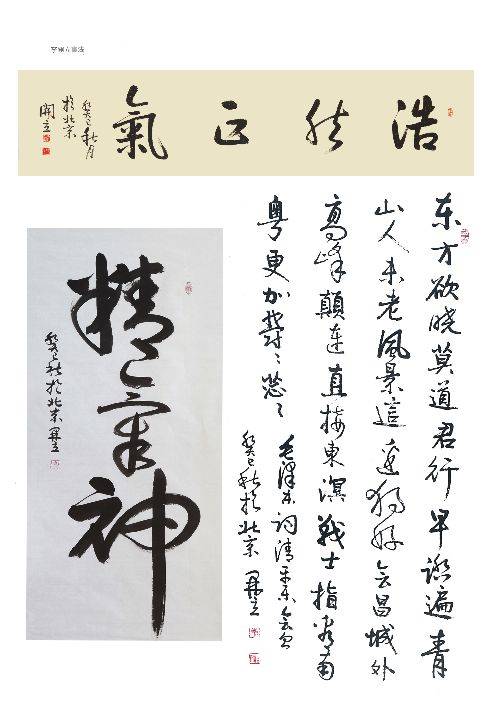 李開立書法
浩然正氣
癸巳秋月
於北京
開立
东方欲晓莫道君行早踏遍青
山人未老風景這边独好会昌城外
高峰顛连直接東溟戰士指看南
粤更加鬱〻葱〻
毛澤东词清平乐会昌
癸巳秋於北京 開立
精氣神
癸巳秋於北京 開立